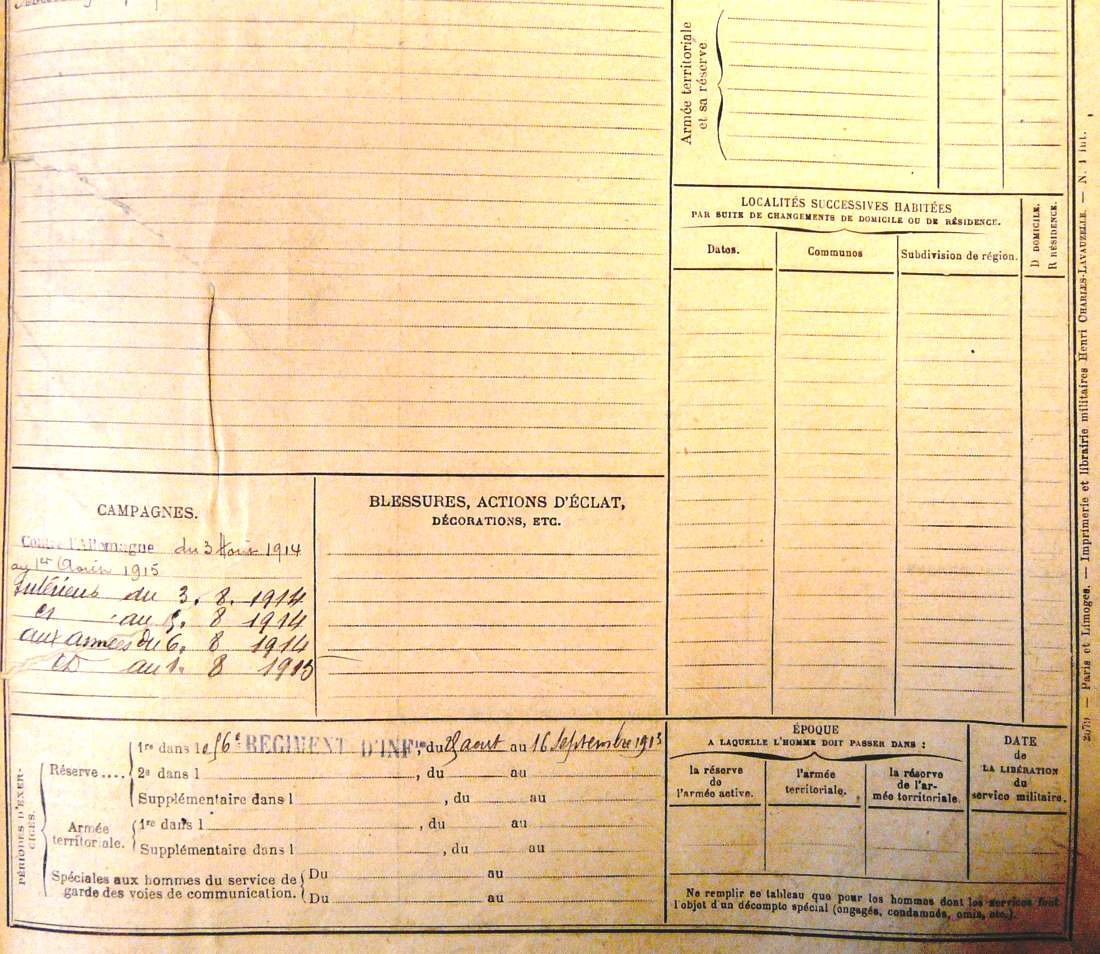 Armée territoriale
et sa réserve
LOCALITÉS SUCCESSIVES HABITÉES
PAR SUITE DE CHANGEMENTS DE DOMICILE OU DE RÉSIDENCE.
D DOMICILE.
R RÉSIDENCE.
Dates. Communes Subdivision de région.
CAMPAGNES.
Contre l'Allemagne du 3 Août 1914
au 1er Août 1915
Intérieur du 3. 8. 1914
au 5. 8 1914
aux armées du 6. 8 1914
au 1. 8 1915
BLESSURES, ACTIONS D'ÉCLAT,
DÉCORATIONS, ETC.
PÉRIODES D'EXER-
CICES.
Réserve....
1re dans le 56e RÉGIMENT D'INFie, du août au 16 Septembre 1913
2e dans l , du au
Supplémentaire dans l , du au
Armée
territoriale.
1re dans l , du au
Supplémentaire dans l , du au
Spéciales aux hommes du service de
garde des voies de communication.
Du au
Du au
ÉPOQUE
A LAQUELLE L'HOMME DOIT PASSER DANS :
la réserve
de
l'armée active.
l'armée
territoriale.
la réserve
de l'ar-
mée territoriale.
DATE
de
LA LIBÉRATION
du
service militaire.
Ne remplir ce tableau que pour les hommes dont les services font
l'objet d'un décompte spécial (engagés, condamnés, omis, etc.).
2079 — Paris et Limoges. — Imprimerie et librairie militaires Henri CHARLES-LAVAUZELLE. — N. 1 int.